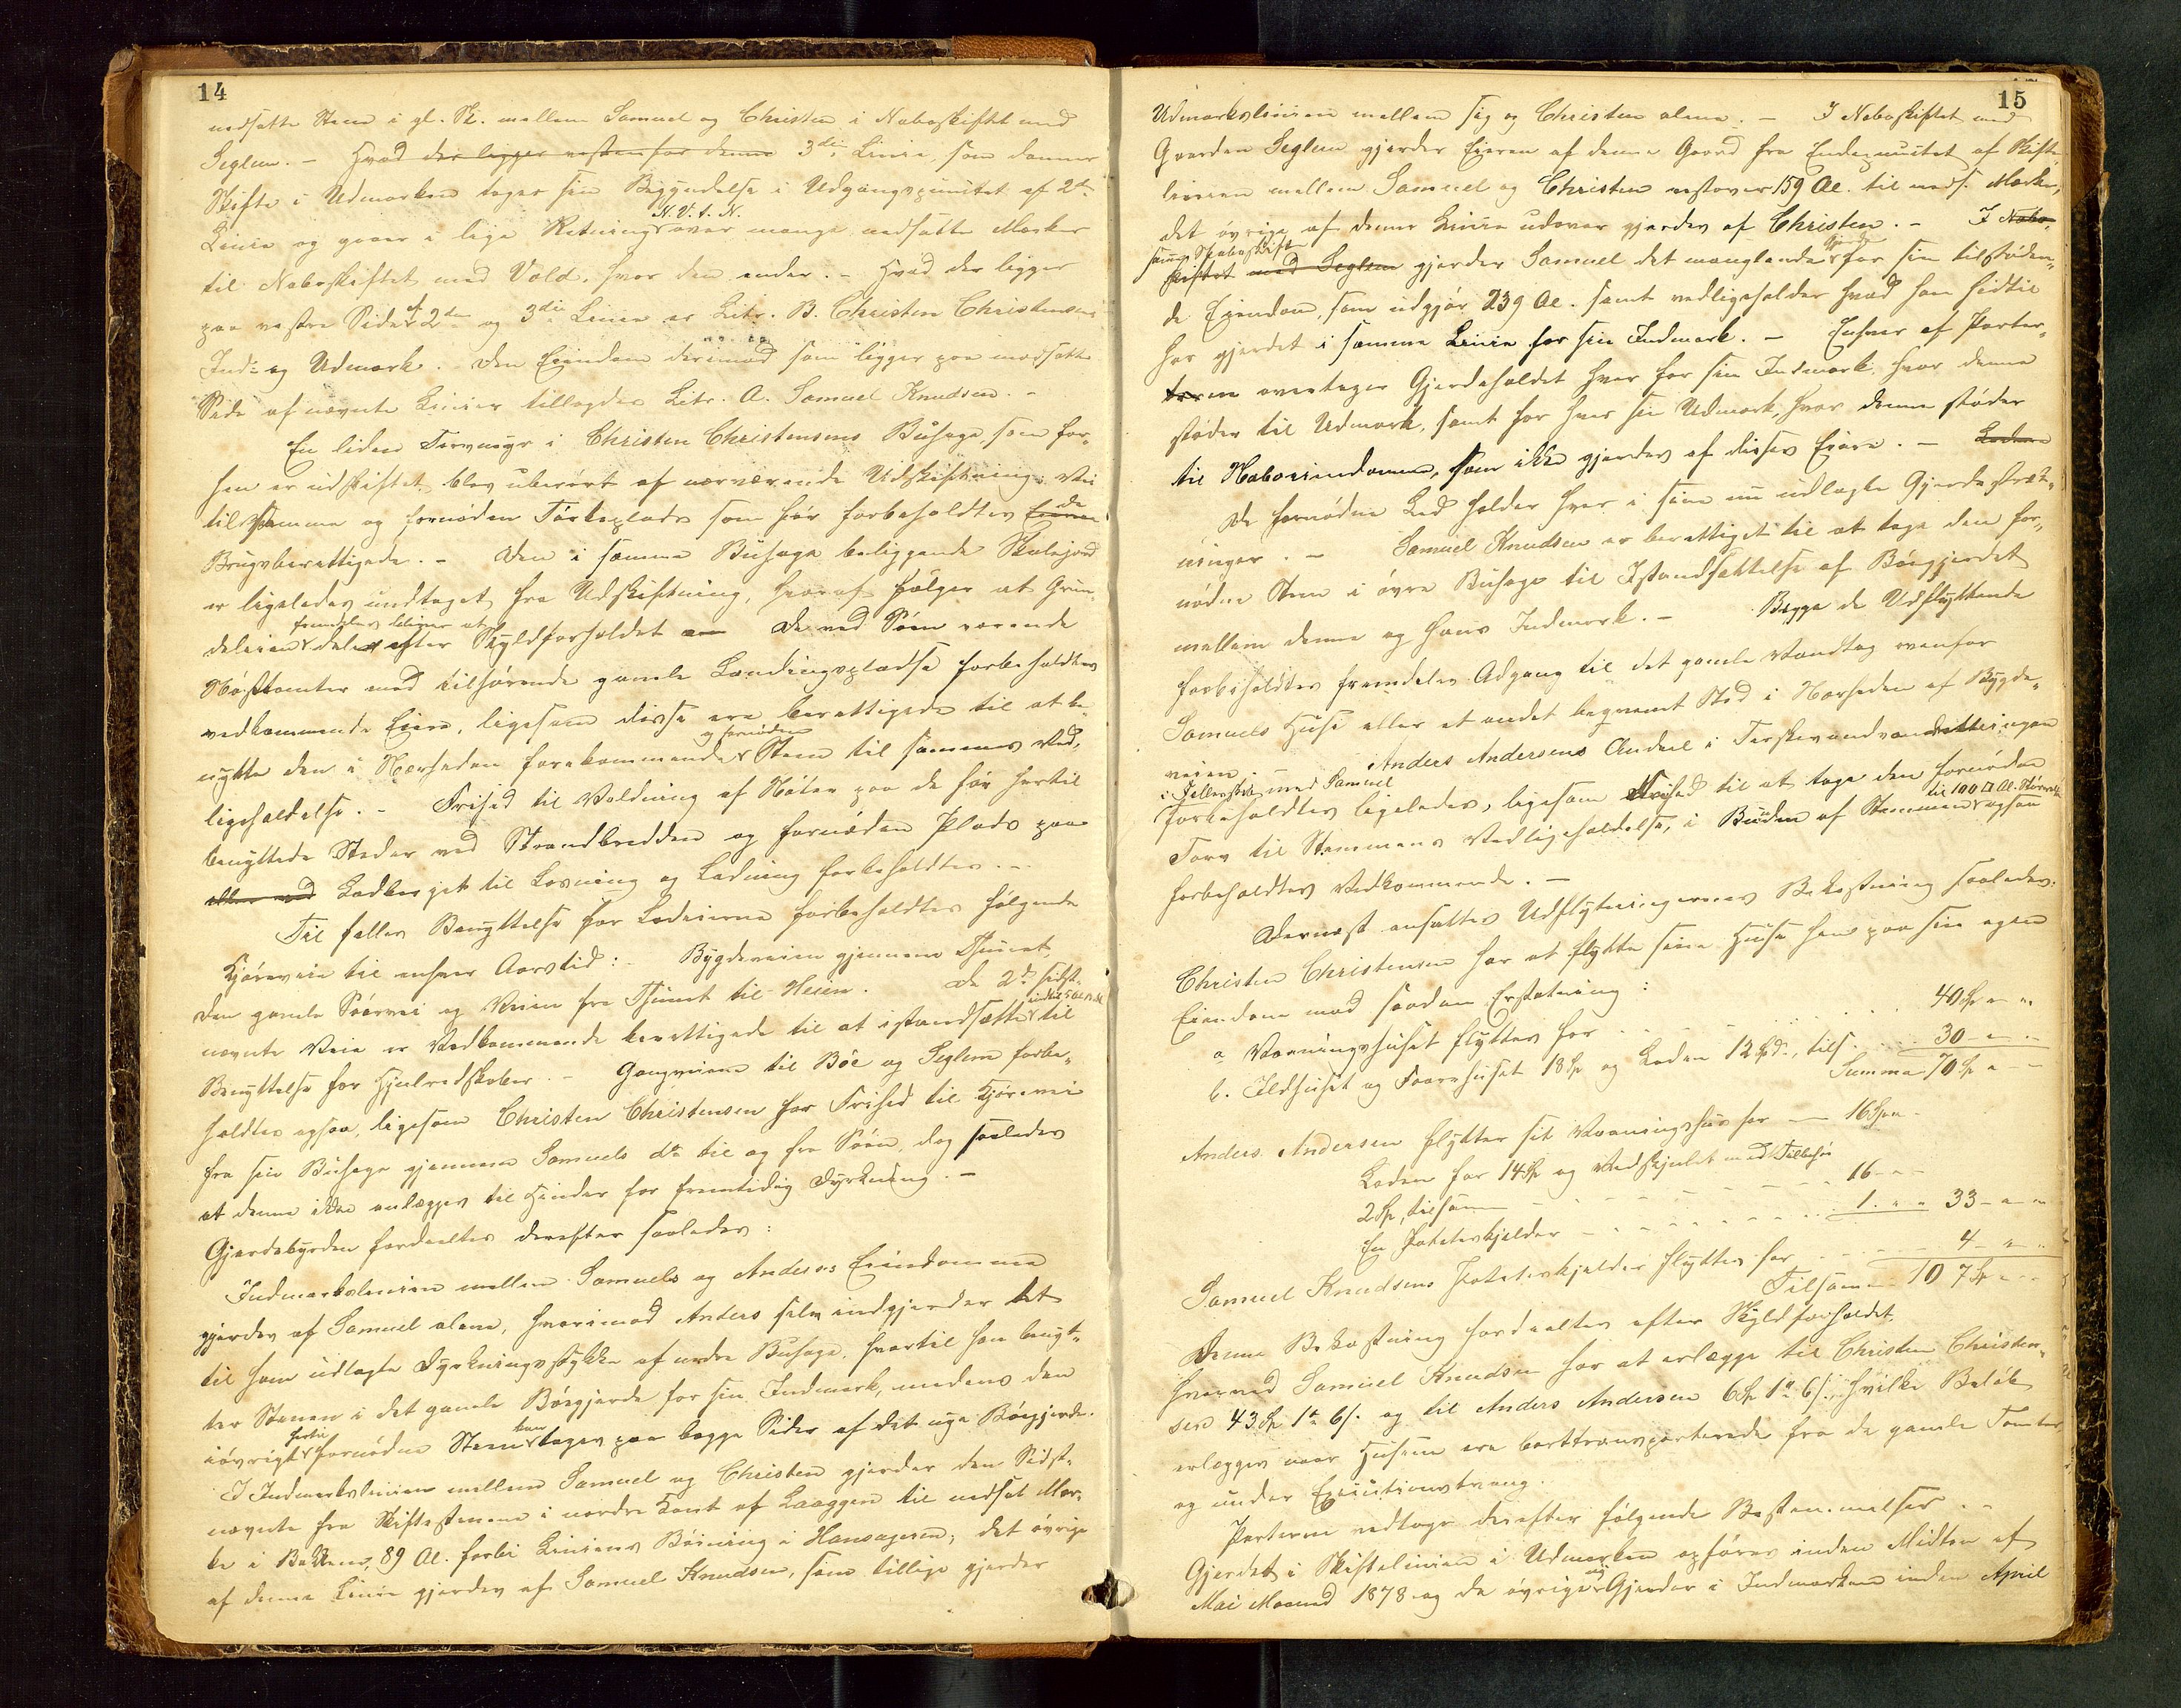 14
nedsatte Stene i gl. Sk. mellem Samuel og Christen i Naboskiftet med
Seglem. - Hvad der ligger vestenfor denne 3die Linie, som danner
Skifte i Udmarken tager sin Begyndelse i Udgangspunktet af 2den
Linie og gaaer i lige Retning N.V.t.N. over mange nedsatte Mærker
til Naboskiftet med Vold, hvor den ender. - Hvad der ligger
paa vestre Side af 2den og 3die Linie er Litr. B. Christen Christensens
Ind- og Udmark. Den Eiendom derimod som ligger paa modsatte
Side af nævnte Linier tillagdes Litr. A. Samuel Knudsen. -
En liden Torvmyr i Christen Christensens Buhage, som for-
hen er udskiftet, blev uberørt af nærværende Udskiftning. Vei
til samme og fornøden Tørkeplads som før forbeholdtes Eierne de
Brugsberettigede. - Den i samme Buhage beliggende Skolejord
er ligeledes undtaget fra Udskiftning, hvoraf følger at Grun-
deleien fremdeles bliver at deles efter Skyldforholdet De ved Søen værende
Nøsttomter med tilhørende gamle Landingspladse forbeholdtes
vedkommende Eiere, ligesom disse ere berettigede til at be-
nytte den i Nærheden forekommende og fornøden Steen til sammes Ved-
ligeholdelse. - Frihed til Voldning af Nøter paa de før hertil
benyttede Steder ved Strandbredden og fornøden Plads paa
eller ved Ladberget til Losning og Ladning forbeholdtes. -
Til fælles Benyttelse for Lodeierne forbeholdtes følgende
Kjøreveie til enhver Aarstid: - Bygdeveien gjennem Thunet,
den gamle Søvei og Veien fra Thunet til Heien. De 2de sidst-
nævnte Veie er Vedkommende berettigede til at istandsætte indtil 5 Al. Br. til
Benyttelse for Hjulredskaber. - Gangveiene til Bøe og Seglem forbe-
holdtes ogsaa, ligesom Christen Christensen har Frihed til Kjørevei
fra sin Buhage gjennem Samuels do til og fra Søen, dog saaledes
at denne ikke anlægges til Hinder for fremtidig Dyrkning. -
Gjerdebyrden fordeeltes derefter saaledes:
Indmarkslinien mellem Samuels og Anders's Eiendomme
gjerdes af Samuel alene, hvorimod Anders selv indgjerder det
til ham udlagte Dyrkningsstykke af nedre Buhage, hvortil han benyt-
ter Stenen i det gamle Bøegjerde for sin Indmark, medens den
iøvrigt hertil fornødne Steen kan tages paa begge Sider af det nye Bøegjerde.
I Indmarkslinien mellem Samuel og Christen gjerder den Sidst-
nævnte fra Skiftestenene i nordre Kant af Laaggen til nedsat Mær-
ke i Bakken, 89 Al. forbi Liniens Bøining i Hansageren; det øvrige
af denne Linie gjerdes af Samuel Knudsen, som tillige gjerder
15
Udmarkslinien mellem sig og Christen alene. - I Naboskiftet med
Gaarden Seglem gjerder Eieren af denne Gaard fra Endepunktet af Skifte-
linien mellem Samuel og Christen vestover 159 Al. til neds. Mærke,
det øvrige af denne Linie udover gjerdes af Christen. - I Nabo-
samme Naboskift
skiftet med Seglem gjerder Samuel det manglende Gjerde for sin tilstøden-
de Eiendom, som udgjør 239 Al. samt vedligeholder hvad han hidtil
har gjerdet i samme Linie for sin Indmark. - Enhver af Parter-
terne overtager Gjerdeholdet hver for sin Indmark, hvor denne
støder til Udmark, samt for hver sin Udmark, hvor denne støder
til Naboeiendomme, som ikke gjerdes af disses Eiere. -
De fornødne Led holder hver i sine nu udlagte Gjerdestræk-
ninger. - Samuel Knudsen er berettiget til at tage den for-
nødne Steen i øvre Buhage til Istandsættelse af Bøegjerdet
mellem denne og hans Indmark. - Begge de Udflyttende
forbeholdtes fremdeles Adgang til det gamle Vandtag ovenfor
Samuels Huse eller et andet beqvemt Sted i Nærheden af Bygde-
veien. - Anders Andersens Andeel i Ferskevandsindretningen
i Fellesskab med Samuel
forbeholdtes ligeledes, ligesom Frihed til at tage den fornødne
Torv til Stemmens Vedligeholdelse, i Bunden af Stemmen til 100 □ Al. Størrelse ogsaa
forbeholdtes Vedkommende. -
Dernæst ansattes Udflytningernes Bekostning saaledes:
Christen Christensen har at flytte sine Huse hen paa sin egen
Eiendom mod saadan Erstatning:
a. Vaaningshuset flyttes for . . . . . 40 Sp " "
b. Ildhuset og Faarehuset 18 Sp og Laden 12 Spd., tils. . . . 30 " "
Summa 70 Sp " "
Anders Andersen flytter sit Vaaningshus for — 16 Sp " "
Laden for 14 Sp og Vedskjulet med Tilbehør
2 Sp, tilsam. - - - - - 16 " "
En Potetskjelder - - - - - 1. " " 33 " "
Samuel Knudsens Potetskjelder flyttes for . . . . . 4 " "
Tilsammen 107 Sp " "
Denne Bekostning fordeeltes efter Skyldforholdet,
hvorved Samuel Knudsen har at erlægge til Christen Christen-
sen 43 Sp 1 " 6 s. og til Anders Andersen 6 Sp 1 " 6 s. hvilke Beløb
erlægges naar Husene ere borttransporterede fra de gamle Tomter
og under Executionstvang.
Parterne vedtoge derefter følgende Bestemmelser. -
Gjerdet i Skiftelinien i Udmarken opføres inden Midten af
Mai Maaned 1878 og de øvrige nye Gjerder i Indmarken inden April